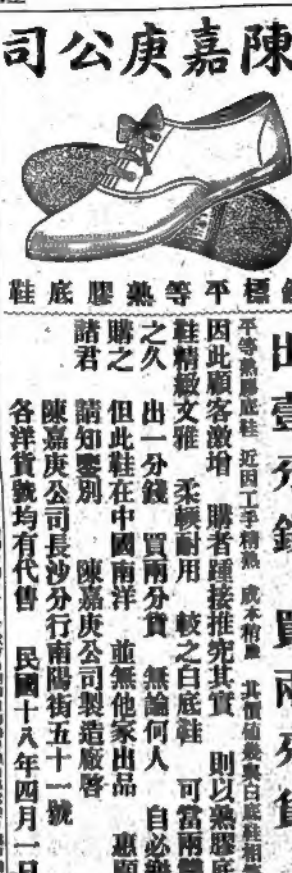 陳嘉庚公司
標平等熟膠底鞋
出壹分錢 買兩分貨
平等熟膠底鞋 近因工手精熟 成本稍廉 其價值幾與白底鞋相
因此顧客激增 購者踵接推究其實 則以熟膠底
鞋精緻文雅 柔輭耐用 較之白底鞋 可當兩雙
之久 出一分錢 買兩分貨 無論何人 自必樂
購之 但此鞋在中國南洋 並無他家出品 惠顧
諸君 請知鑒別 陳嘉庚公司製造廠啓
陳嘉庚公司長沙分行南陽街五十一號
各洋貨號均有代售 民國十八年四月一日